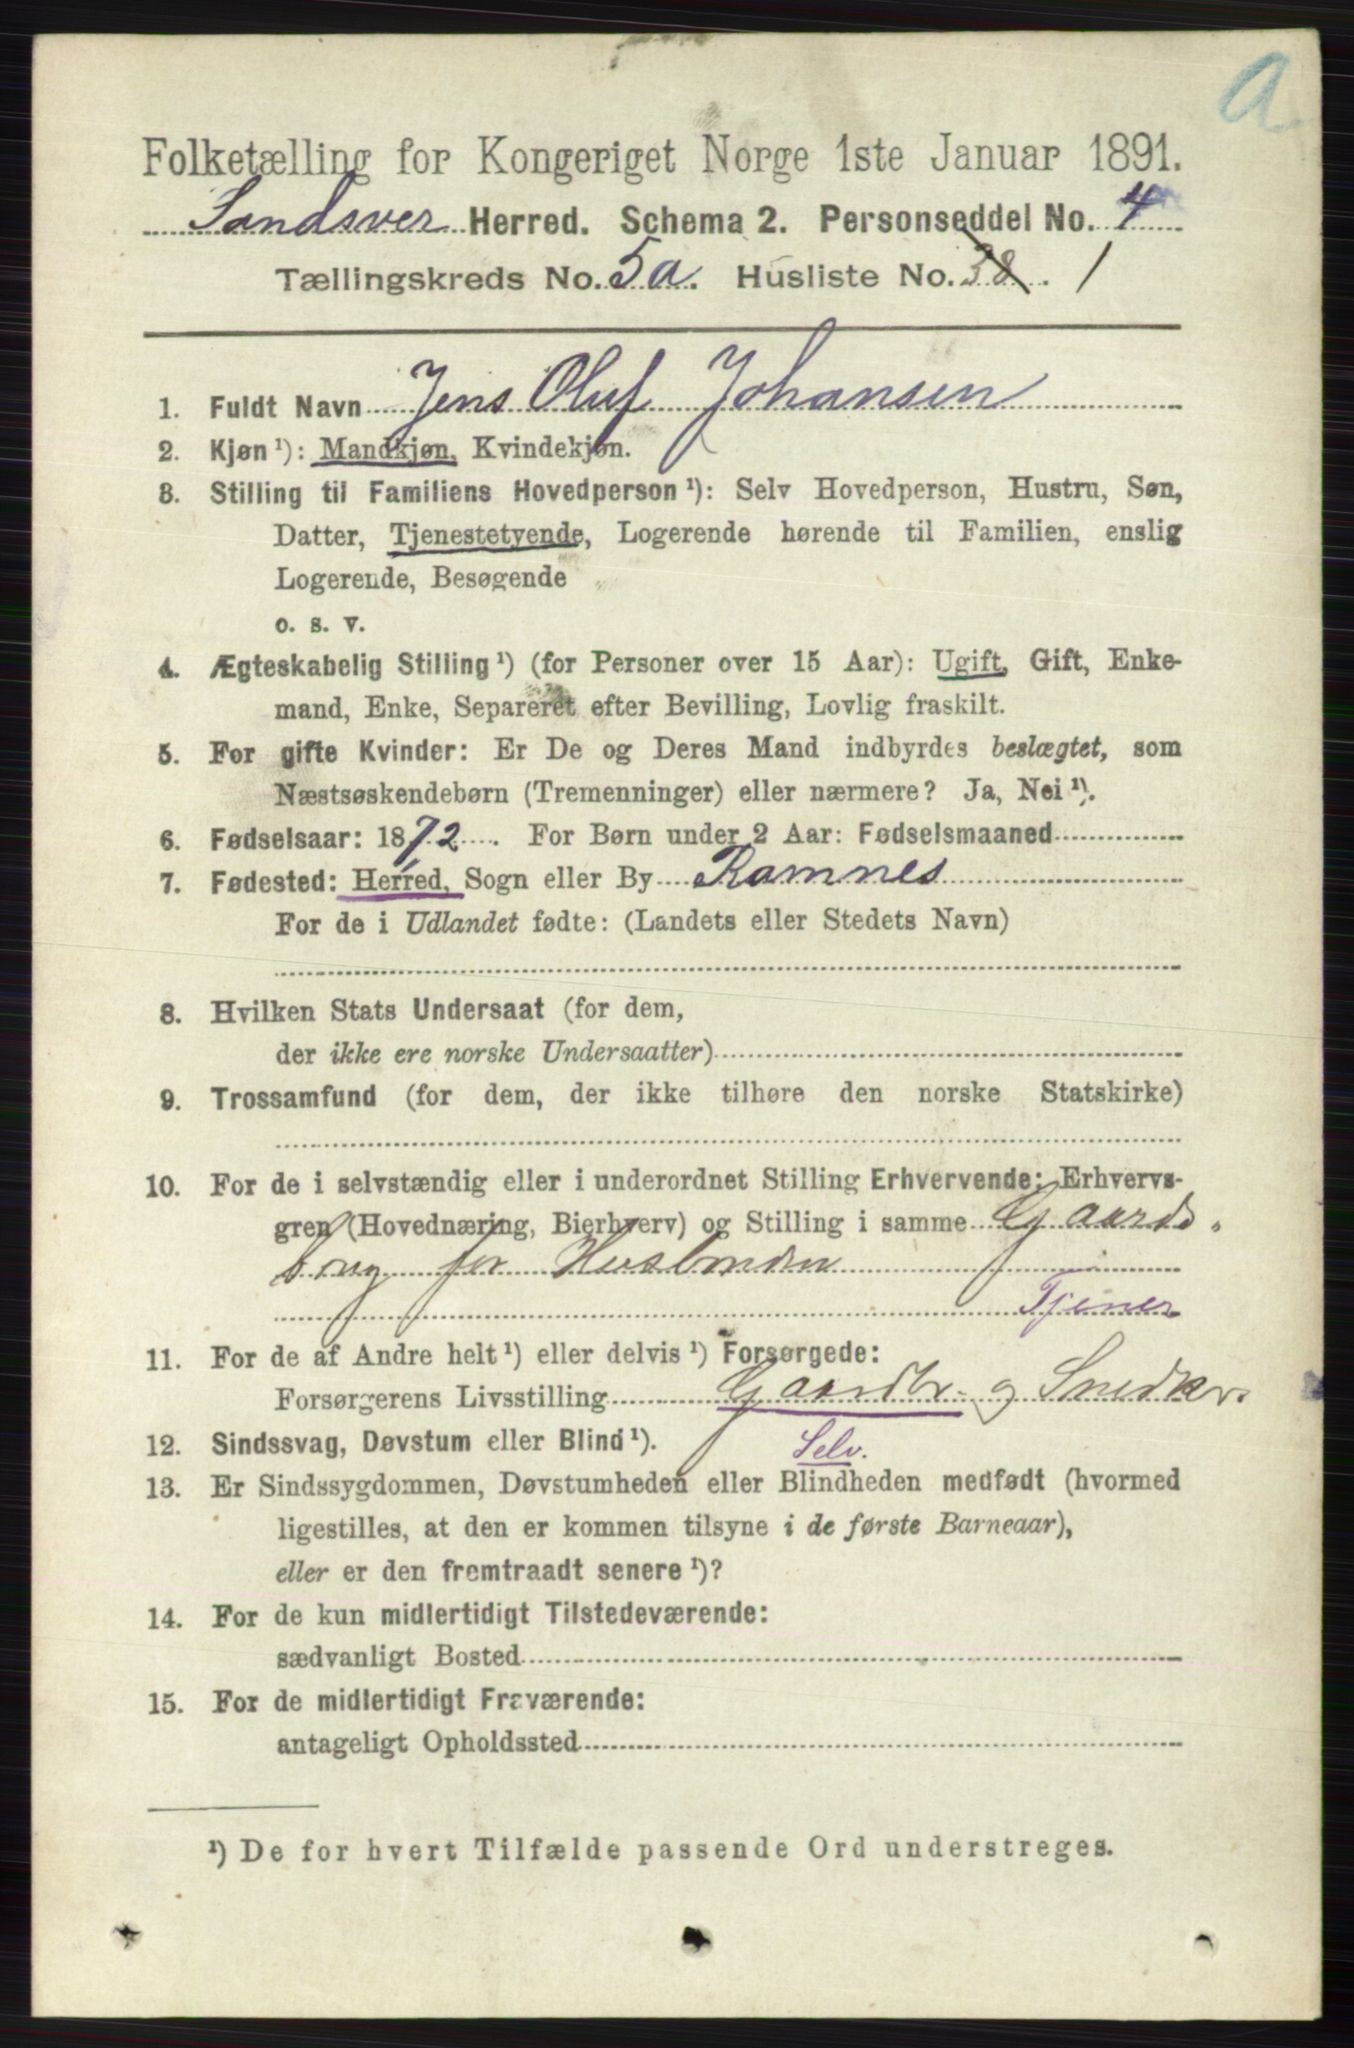 a
Folketælling for Kongeriget Norge 1ste Januar 1891.
Sandsver Herred. Schema 2. Personseddel No. 4
Tællingskreds No. 5a. Husliste No. 38. 1
1. Fuldt Navn Jens Oluf Johansen
2. Kjøn ¹): Mandkjøn, Kvindekjøn.
3. Stilling til Familiens Hovedperson ¹): Selv Hovedperson, Hustru, Søn,
Datter, Tjenestetyende, Logerende hørende til Familien, enslig
Logerende, Besøgende
o. s. v.
4. Ægteskabelig Stilling ¹) (for Personer over 15 Aar): Ugift, Gift, Enke-
mand, Enke, Separeret efter Bevilling, Lovlig fraskilt.
5. For gifte Kvinder: Er De og Deres Mand indbyrdes beslægtet, som
Næstsøskendebørn (Tremenninger) eller nærmere? Ja, Nei ¹).
6. Fødselsaar: 1872. For Børn under 2 Aar: Fødselsmaaned
7. Fødested: Herred, Sogn eller By Ramnes
For de i Udlandet fødte: (Landets eller Stedets Navn)
8. Hvilken Stats Undersaat (for dem,
der ikke ere norske Undersaatter)
9. Trossamfund (for dem, der ikke tilhøre den norske Statskirke)
10. For de i selvstændig eller i underordnet Stilling Erhvervende: Erhvervs-
gren (Hovednæring, Bierhverv) og Stilling i samme Gaards-
brug for Husbonden
Tjener
11. For de af Andre helt ¹) eller delvis ¹) Forsørgede:
Forsørgerens Livsstilling Gaardbr. og Snedker
12. Sindssvag, Døvstum eller Blind ¹). Selv.
13. Er Sindssygdommen, Døvstumheden eller Blindheden medfødt (hvormed
ligestilles, at den er kommen tilsyne i de første Barneaar),
eller er den fremtraadt senere ¹)?
14. For de kun midlertidigt Tilstedeværende:
sædvanligt Bosted
15. For de midlertidigt Fraværende:
antageligt Opholdssted
¹) De for hvert Tilfælde passende Ord understreges.